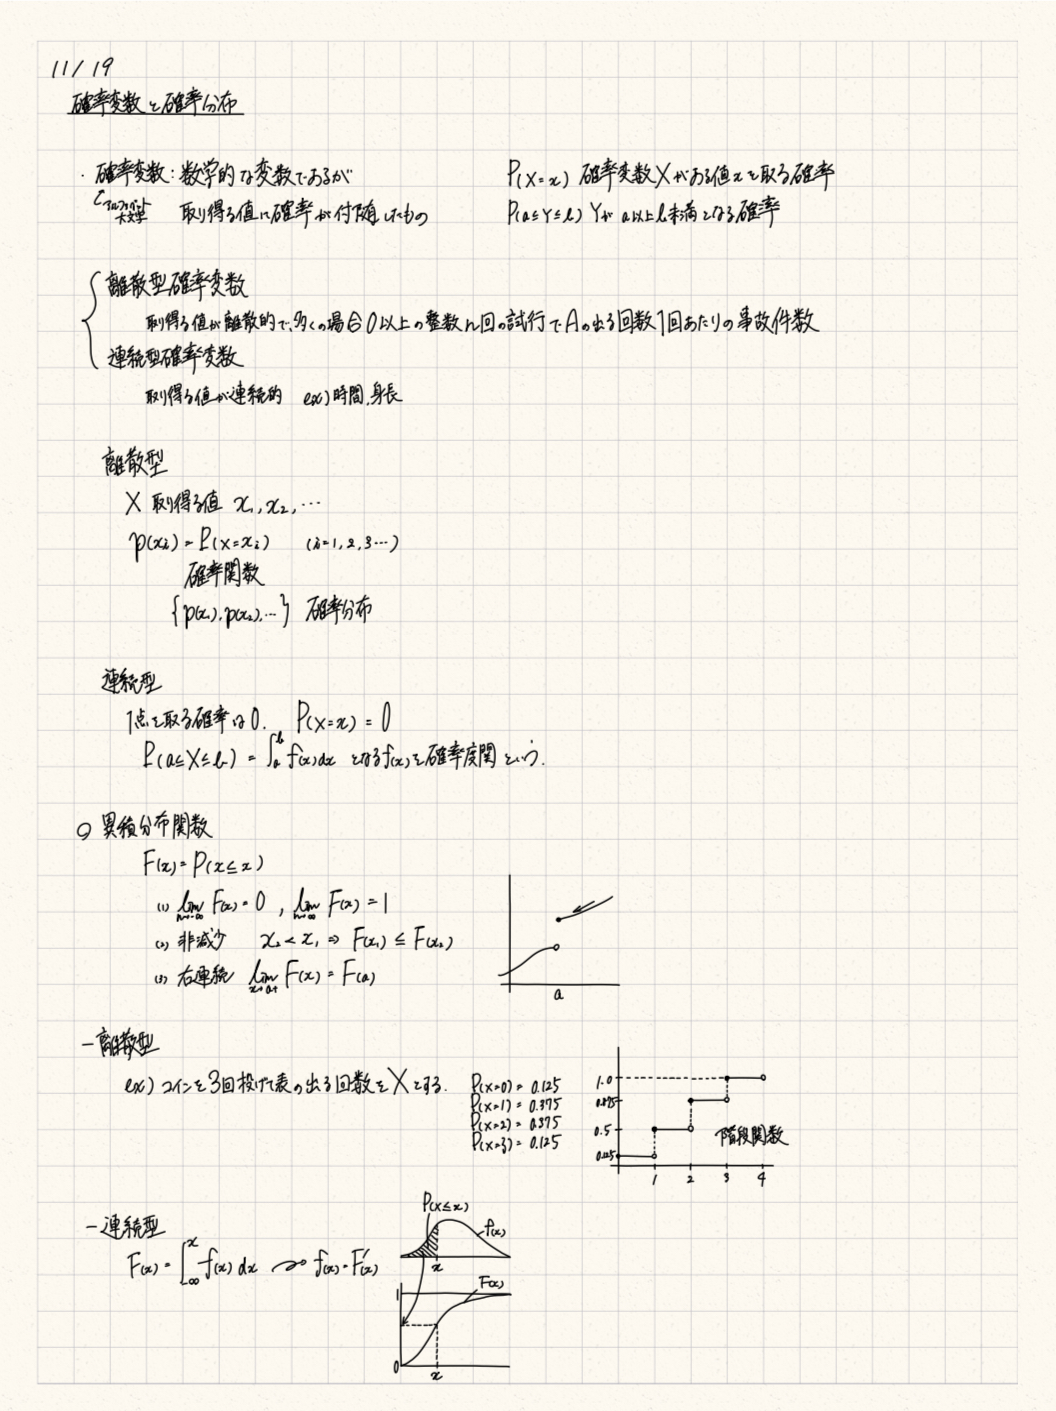 11/19
確率変数と確率分布
・確率変数：数学的な変数であるが
アルファベット大文字
取り得る値に確率が付随したもの
P(X=x) 確率変数Xがある値xを取る確率
P(a≦Y≦b) Yがa以上b未満となる確率
離散型確率変数
取り得る値が離散的で、多くの場合0以上の整数 n回の試行でAの出る回数 1回あたりの事故件数
連続型確率変数
取り得る値が連続的 ex)時間,身長
離散型
X 取り得る値 x₁,x₂,…
p(xᵢ)=P(X=xᵢ) (i=1,2,3…)
確率関数
{p(x₁),p(x₂),…} 確率分布
連続型
1点を取る確率は0. P(X=x)=0
P(a≦X≦b)=∫ₐᵇ f(x)dx となるf(x)を確率度関という.
○ 累積分布関数
F(x)=P(x≦x)
(1) lim n→-∞ F(x)=0, lim n→∞ F(x)=1
(2) 非減少 x₂<x₁ ⇒ F(x₁)≦F(x₂)
(3) 右連続 lim x→a+ F(x)=F(a)
a
－離散型
ex)コインを3回投げて表の出る回数をXとする.
P(X=0)=0.125
P(X=1)=0.375
P(X=2)=0.375
P(X=3)=0.125
1.0
0.875
0.5
0.125
1 2 3 4
階段関数
－連続型
F(x)=∫₋∞ˣ f(x)dx f(x)=F'(x)
P(X≦x)
f(x)
x
F(x)
1
0
x